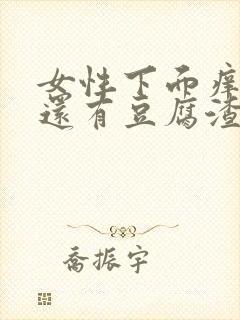 女性下面痒
還有豆腐渣
喬振宇